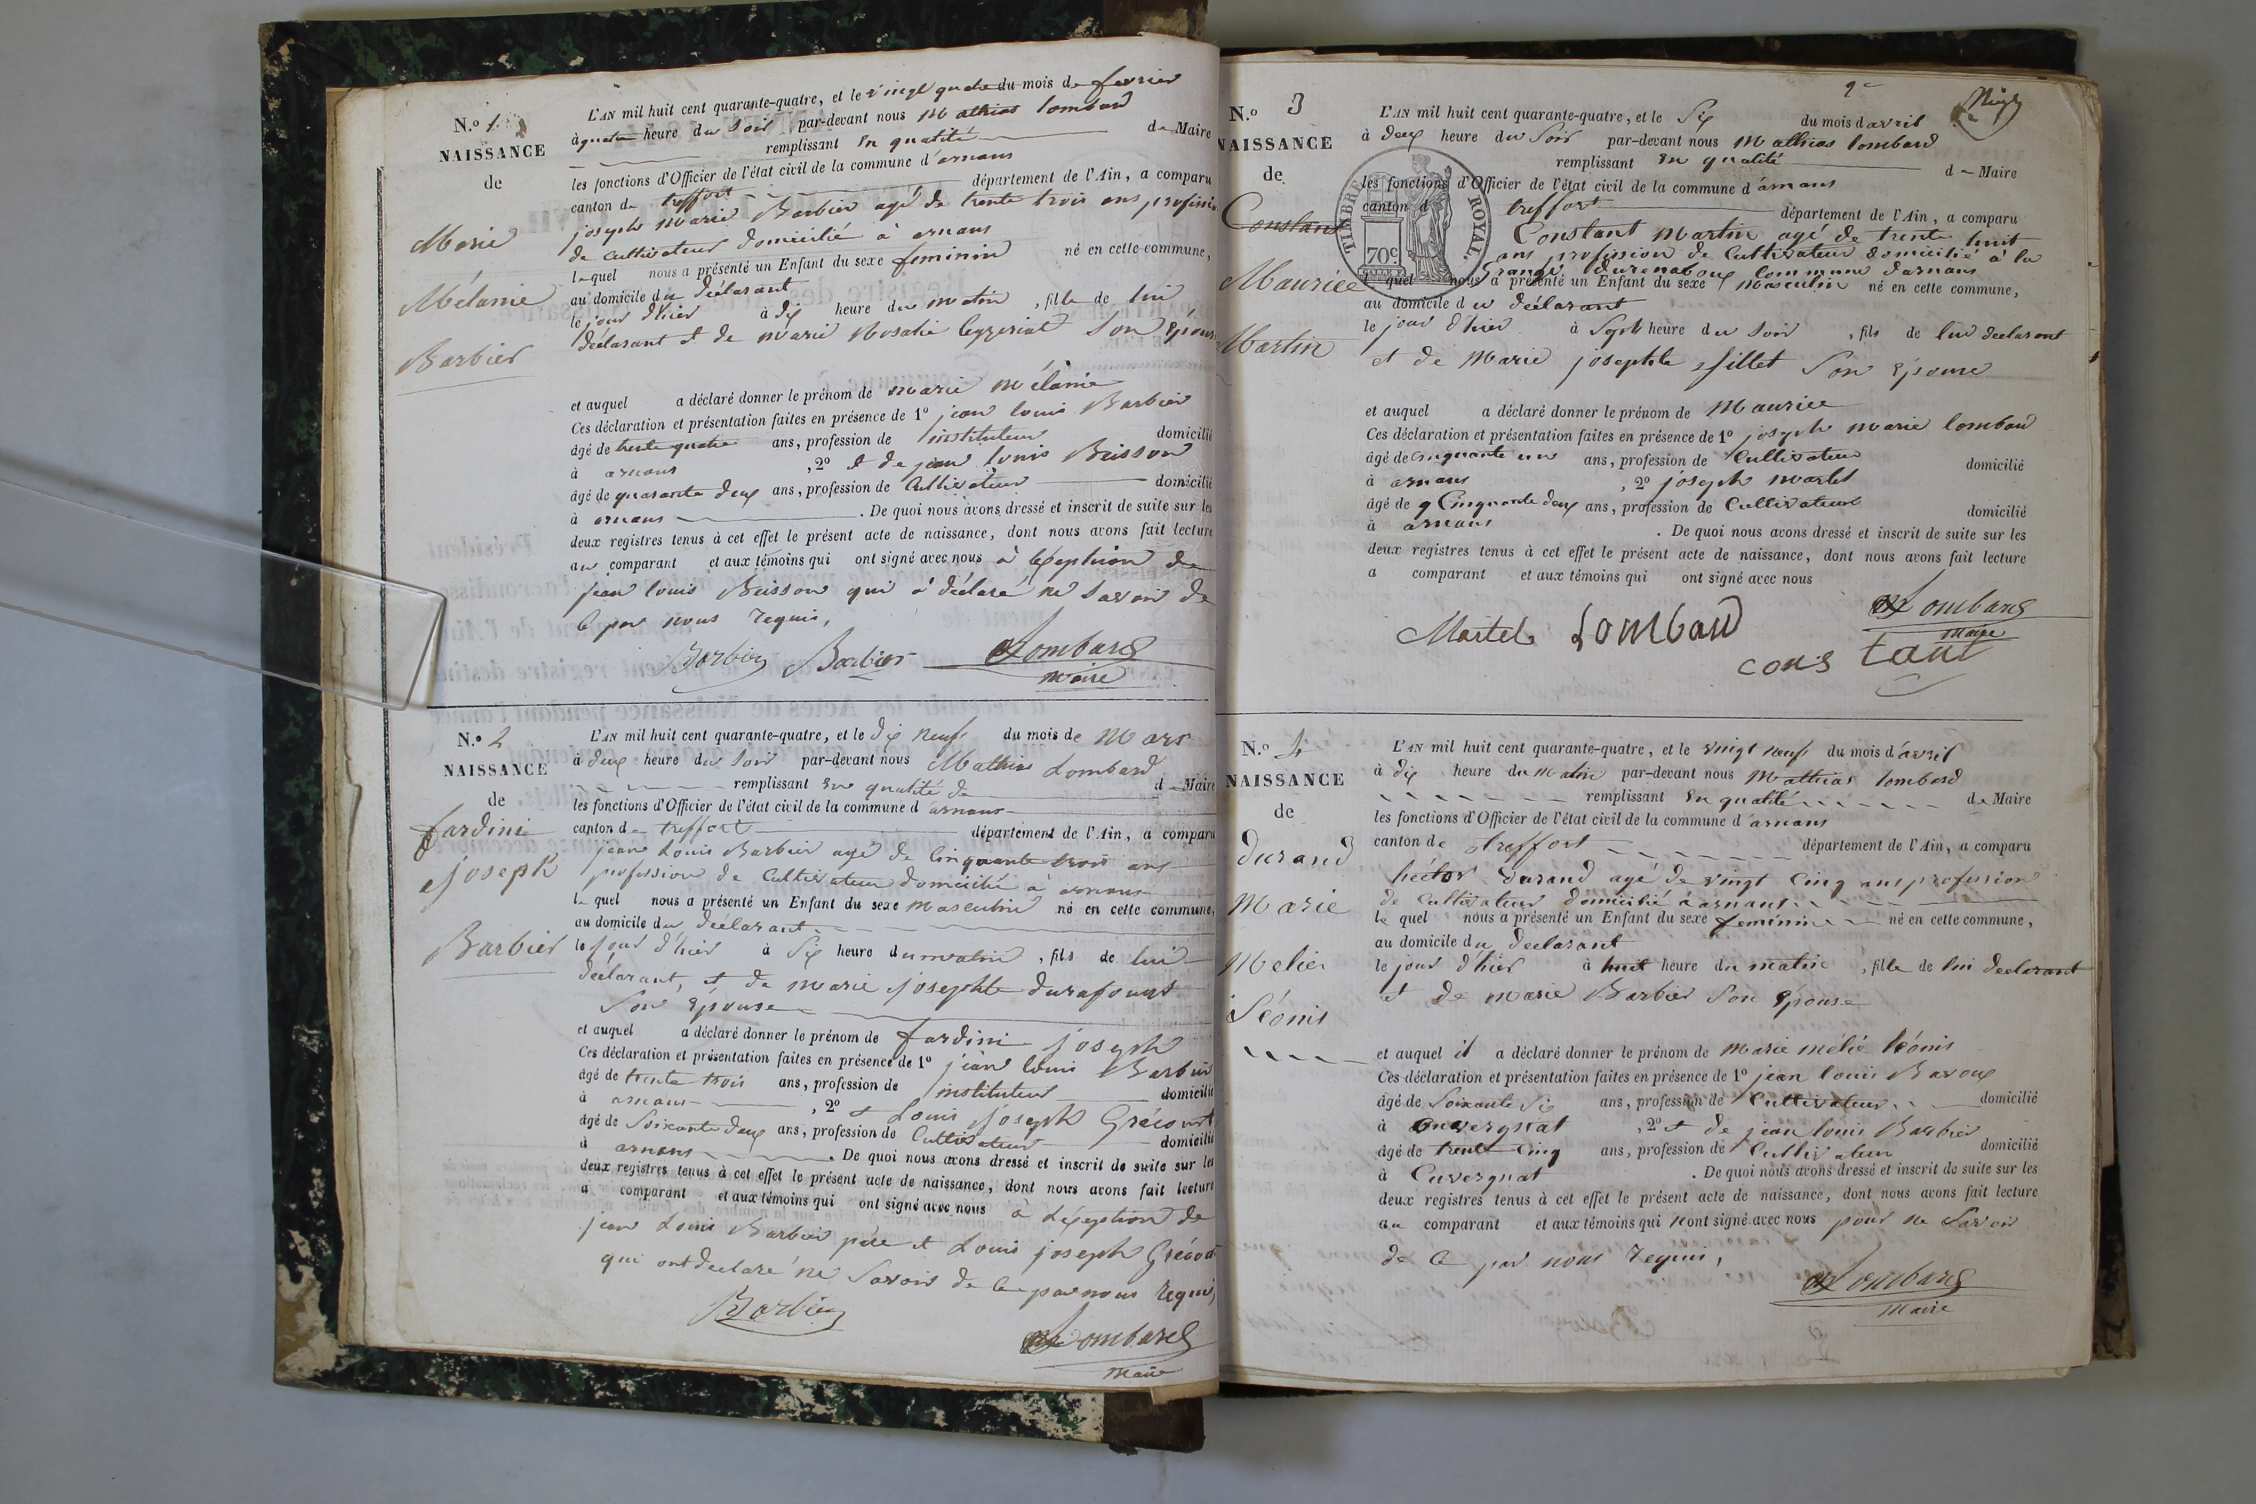 N.o 1
NAISSANCE
de
Marie
Mélanie
Barbier
L'AN mil huit cent quarante-quatre, et le vingt quatre du mois de fevrier
à quatre heure du Soir par-devant nous Mathias lombard
remplissant En qualité de Maire
les fonctions d'Officier de l'état civil de la commune d'arnans
canton de treffort département de l'Ain, a comparu
joseph Marie Barbier agé de trente trois ans profession
de Cultivateur domicilié à arnans
lequel nous a présenté un Enfant du sexe feminin né en cette commune,
au domicile du déclarant
le jour d'hier à dix heure du matin, fille de lui
déclarant et de marie Rosalie Ceyzeriat Son Epouse
et auquel a déclaré donner le prénom de marie mélanie
Ces déclaration et présentation faites en présence de 1o jean louis Barbier
âgé de trente quatre ans, profession de instituteur domicilié
à arnans, 2o et de jean louis Buisson
âgé de quarante deux ans, profession de Cultivateur domicilié
à arnans. De quoi nous avons dressé et inscrit de suite sur les
deux registres tenus à cet effet le présent acte de naissance, dont nous avons fait lecture
au comparant et aux témoins qui ont signé avec nous à lexeption de
jean louis Buisson qui à déclaré ne Savoir de
Ce par nous requis,
Barbier Barbier Lombard
maire
N.o 2
NAISSANCE
de
fardini
joseph
Barbier
L'AN mil huit cent quarante-quatre, et le dix neuf du mois de Mars
à deux heure du Soir par-devant nous Mathias Lombard
remplissant En qualité de d Maire
les fonctions d'Officier de l'état civil de la commune d'arnans
canton de treffort département de l'Ain, a comparu
jean Louis Barbier agé de Cinquante trois ans
profession de Cultivateur domicilié à arnans
lequel nous a présenté un Enfant du sexe masculin né en cette commune,
au domicile du déclarant
le jour d'hier à Six heure du matin, fils de lui
déclarant, et de marie josephte durafourt
Son Epouse
et auquel a déclaré donner le prénom de fardini joseph
Ces déclaration et présentation faites en présence de 1o jean louis Barbier
âgé de trente trois ans, profession de instituteur domicilié
à arnans, 2o et Louis joseph Grécourt
âgé de Soixante deux ans, profession de Cultivateur domicilié
à arnans. De quoi nous avons dressé et inscrit de suite sur les
deux registres tenus à cet effet le présent acte de naissance, dont nous avons fait lecture
a comparant et aux témoins qui ont signé avec nous à lexeption de
jean Louis Barbier père et Louis joseph Grécourt
qui ont declaré ne Savoir de Ce par nous requis,
Barbier
Lombard
maire
2e
N.o 3
NAISSANCE
de
Constant
Maurice
Martin
TIMBRE ROYAL.
70c.
L'AN mil huit cent quarante-quatre, et le Six du mois d'avril
à deux heure du Soir par-devant nous Mathias lombard
remplissant en qualité de Maire
les fonctions d'Officier de l'état civil de la commune d'arnans
canton d treffort département de l'Ain, a comparu
Constant Martin agé de trente huit
ans profession de Cultivateur domicilié à la
commune d'arnans
l quel nous a présenté un Enfant du sexe masculin né en cette commune,
au domicile du déclarant
le jour d'hier à Sept heure du Soir, fils de lui declarant
et de Marie josephte fillet Son Epouse
et auquel a déclaré donner le prénom de Maurice
Ces déclaration et présentation faites en présence de 1o joseph marie lombard
âgé de cinquante un ans, profession de Cultivateur domicilié
à arnans, 2o joseph martel
âgé de Cinquante deux ans, profession de Cultivateur domicilié
à arnans. De quoi nous avons dressé et inscrit de suite sur les
deux registres tenus à cet effet le présent acte de naissance, dont nous avons fait lecture
a comparant et aux témoins qui ont signé avec nous
Martel Lombard Lombard
maire
constant
N.o 4
NAISSANCE
de
durand
Marie
Melie
Léonis
L'AN mil huit cent quarante-quatre, et le vingt neuf du mois d'avril
à dix heure du Matin par-devant nous Mathias lombard
remplissant En qualité de Maire
les fonctions d'Officier de l'état civil de la commune d'arnans
canton de treffort département de l'Ain, a comparu
héctor durand agé de vingt cinq ans profession
de Cultivateur domicilié à arnans
le quel nous a présenté un Enfant du sexe feminin né en cette commune,
au domicile du declarant
le jour d'hier à huit heure du matin, fille de lui declarant
et de marie Barbier Son Epouse
et auquel il a déclaré donner le prénom de marie mélie léonis
Ces déclaration et présentation faites en présence de 1o jean louis Baroux
âgé de Soixante Six ans, profession de Cultivateur domicilié
à Cuvergnat, 2o et de jean louis Barbier
âgé de trente Cinq ans, profession de Cultivateur domicilié
à Cuvergnat. De quoi nous avons dressé et inscrit de suite sur les
deux registres tenus à cet effet le présent acte de naissance, dont nous avons fait lecture
au comparant et aux témoins qui nont signé avec nous pour ne Savoir
de Ce par nous requis,
Lombard
maire